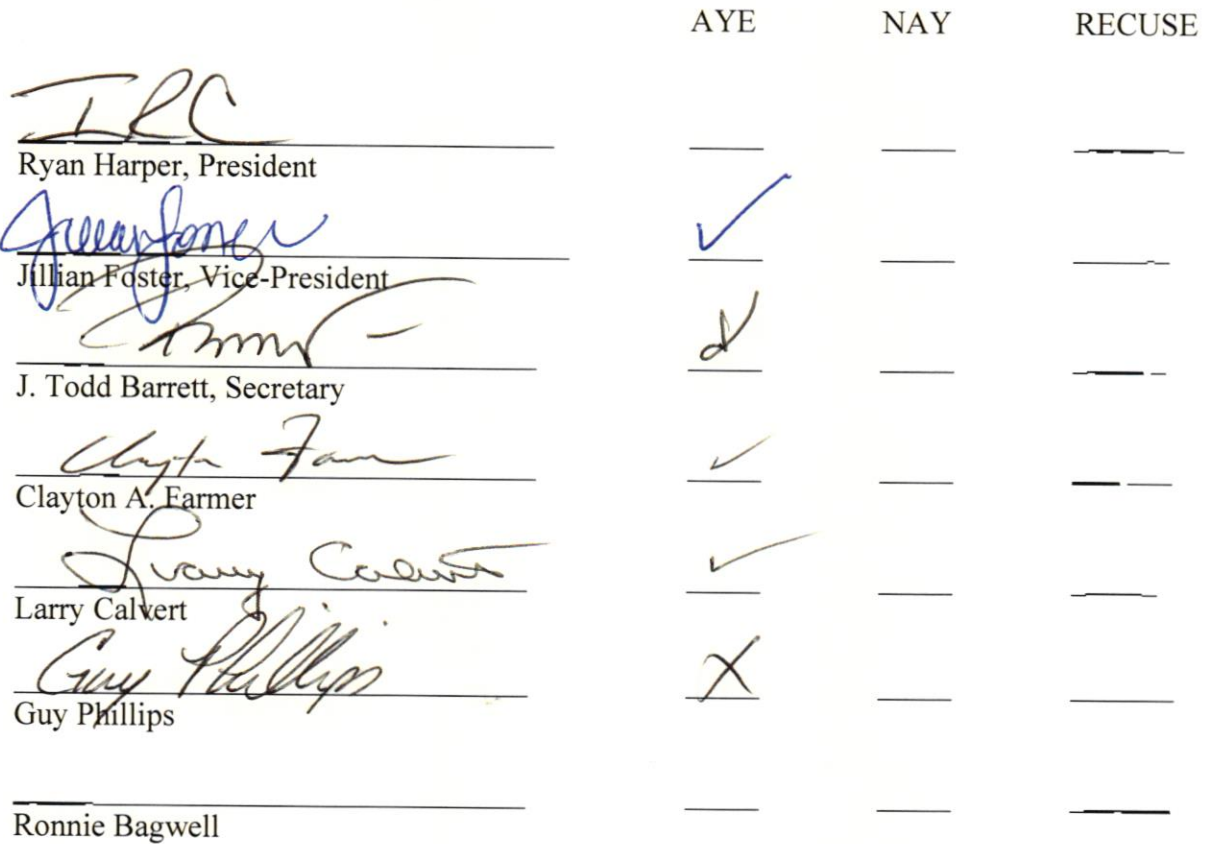 AYE NAY RECUSE
Ryan Harper, President
✓
Jillian Foster, Vice-President
J. Todd Barrett, Secretary
Clayton Farmer ✓
Clayton A. Farmer
Larry Calvert ✓
Larry Calvert
Guy Phillips X
Guy Phillips
Ronnie Bagwell